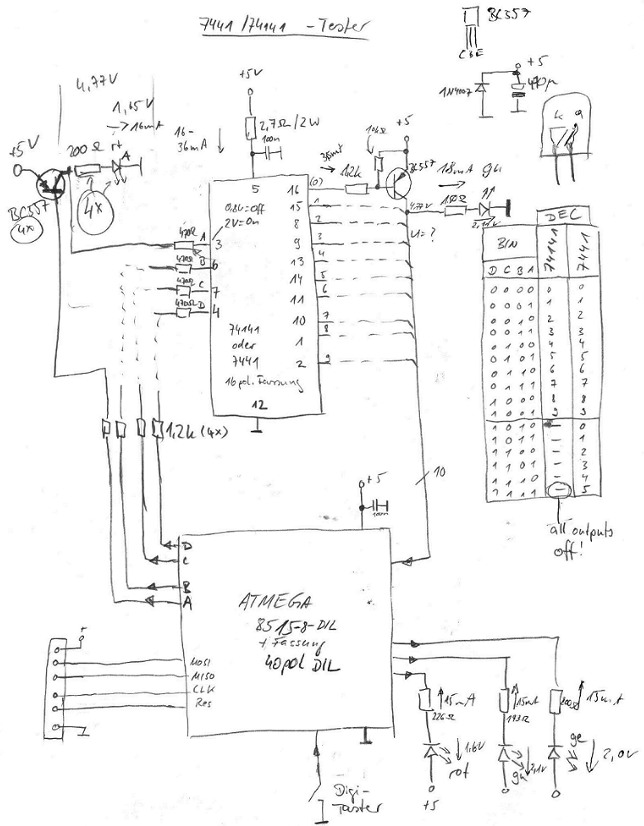 7441 /74141 - Tester
BC557
C B E
+5
1N4007
470µ
k a
4,77V
1,65V
→ 16mA
+5V
200Ω rt
A
4x
BC557
4x
+5V
16-
36mA
2,7Ω/2W
100n
5
0,8V=Off
2V=On
470Ω A 3
470Ω B 6
470Ω C 7
470Ω D 4
16 (0)
15 1
8 2
9 3
13 4
14 5
11 6
10 7
1 8
2 9
74141
oder
7441
16pol. Fassung
12
1,2k
+5
BC557
18mA gn
4,77V
150Ω
2,1V
U=?
DEC
BIN 74141 7441
D C B A
0 0 0 0 0 0
0 0 0 1 1 1
0 0 1 0 2 2
0 0 1 1 3 3
0 1 0 0 4 4
0 1 0 1 5 5
0 1 1 0 6 6
0 1 1 1 7 7
1 0 0 0 8 8
1 0 0 1 9 9
1 0 1 0 - 0
1 0 1 1 - 1
1 1 0 0 - 2
1 1 0 1 - 3
1 1 1 0 - 4
1 1 1 1 - 5
all outputs
off!
1,2k (4x)
10
+5
100n
D
C
B
A
ATMEGA
8515-8-DIL
+ Fassung
40pol DIL
+
MOSI
MISO
CLK
Res
Digi-
Taster
15mA
226Ω
1,6V
rot
+5
15mA
193Ω
2,1V
gn
15mA
200Ω
ge
2,0V